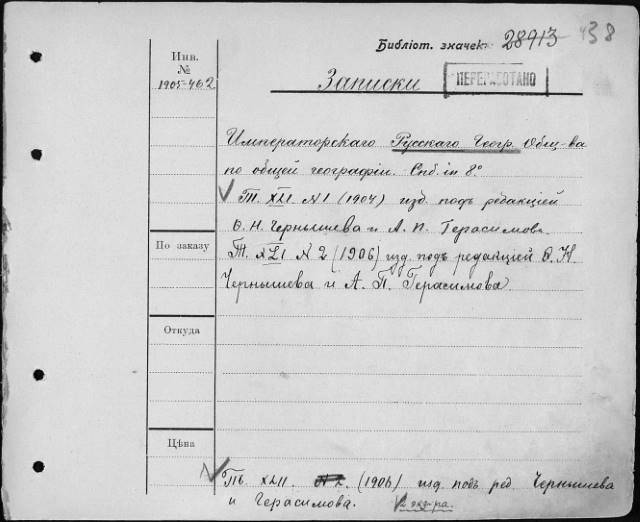 Библіот. значек 28913 438
Инв.
№
1905-462
Записки
ПЕРЕРАБОТАНО
Императорскаго Русскаго Геогр. Общ-ва
по общей географіи. Спб. in 8º
Т. XLI N 1 (1904) изд. подъ редакціей
Ѳ. Н. Чернышева и А. П. Герасимова
По заказу
Т. XLI N 2 (1906) изд. подъ редакціей Ѳ. Н.
Чернышева и А. П. Герасимова
Откуда
Цѣна
Т. XLII (1906) изд. подъ ред. Чернышева
и Герасимова. 2 экз-ра.